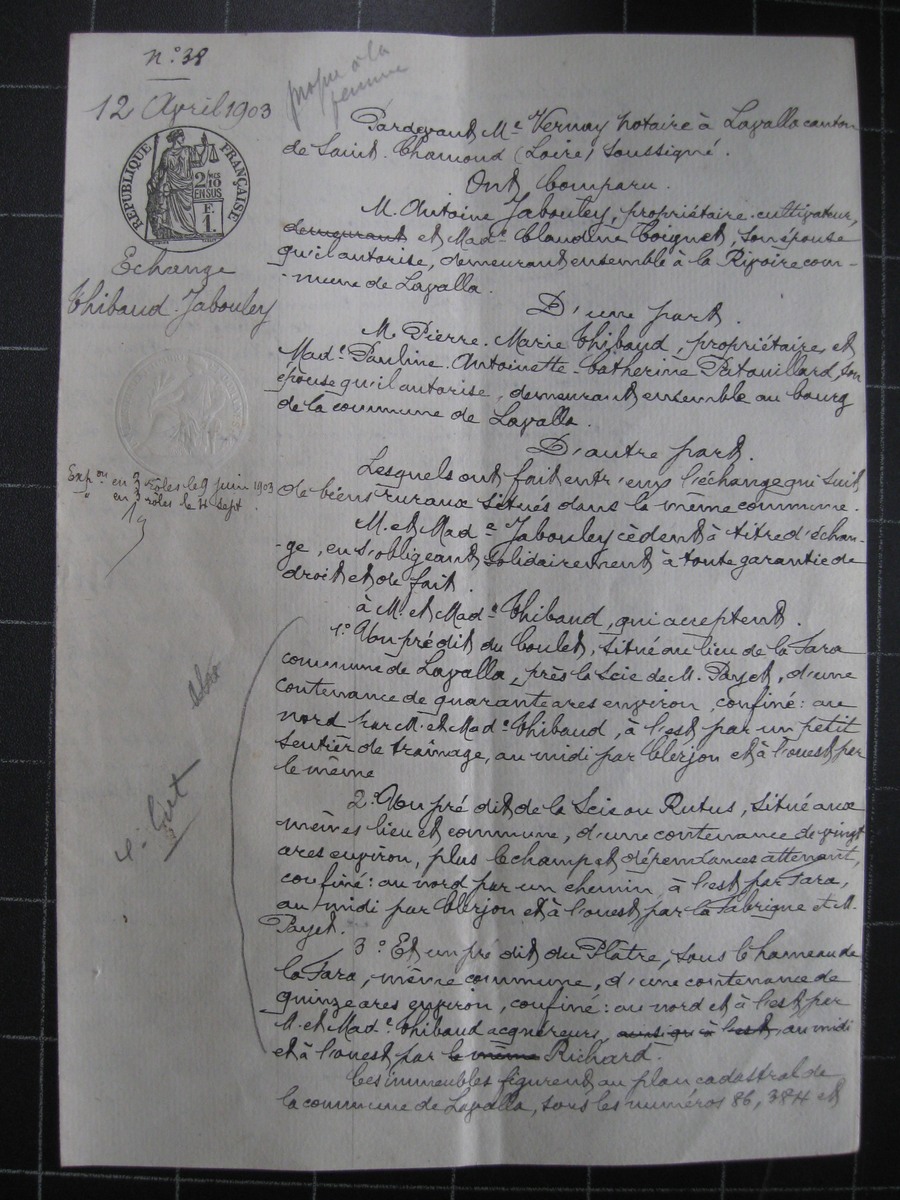 n.° 38
12 Avril 1903
propre à la
femme
RÉPUBLIQUE FRANÇAISE
2/10
EN SUS
E
1.
Echange
Thibaud-Jabouley
Exp.on en 3 rôles le 9 juin 1903
en 3 rôles le 4 sept.
Pardevant Me Vernay notaire à Lavalla canton
de Saint-Chamond (Loire) soussigné.
Ont Comparu.
M. Antoine Jabouley, propriétaire-cultivateur,
demeurant et Made Claudine Coignet, son épouse
qu'il autorise, demeurant ensemble à la Rivoire com-
-mune de Lavalla.
D'une part.
M. Pierre-Marie Thibaud, propriétaire, et
Made Pauline-Antoinette-Catherine Patouillard, son
épouse qu'il autorise, demeurant ensemble au bourg
de la commune de Lavalla.
D'autre part.
Lesquels ont fait entr'eux l'échange qui suit
de biens ruraux situés dans la même commune.
M. et Made Jabouley cèdent à titre d'échan-
-ge, en s'obligeant solidairement à toute garantie de
droit et de fait.
à M. et Made Thibaud, qui acceptent.
1° Un pré dit du Coulet, situé au lieu de la Fara
commune de Lavalla, près la Scie de M. Payet, d'une
contenance de quarante ares environ, confiné: au
nord par M. et Made Thibaud, à l'est par un petit
sentier de traînage, au midi par Clerjon et à l'ouest par
le même
2° Un pré dit de la Scie ou Rutus, situé aux
mêmes lieu et commune, d'une contenance de vingt
ares environ, plus le champ et dépendances attenant,
confiné: au nord par un chemin, à l'est par Fara,
au midi par Clerjon et à l'ouest par la Fabrique et M.
Payet.
3° Et un pré dit du Plâtre, sous le hameau de
la Fara, même commune, d'une contenance de
quinze ares environ, confiné: au nord et à l'est par
M. et Made Thibaud acquéreurs, ainsi qu'à l'est, au midi
et à l'ouest par le même Richard.
Ces immeubles figurent au plan cadastral de
la commune de Lavalla, sous les numéros 86, 384 et